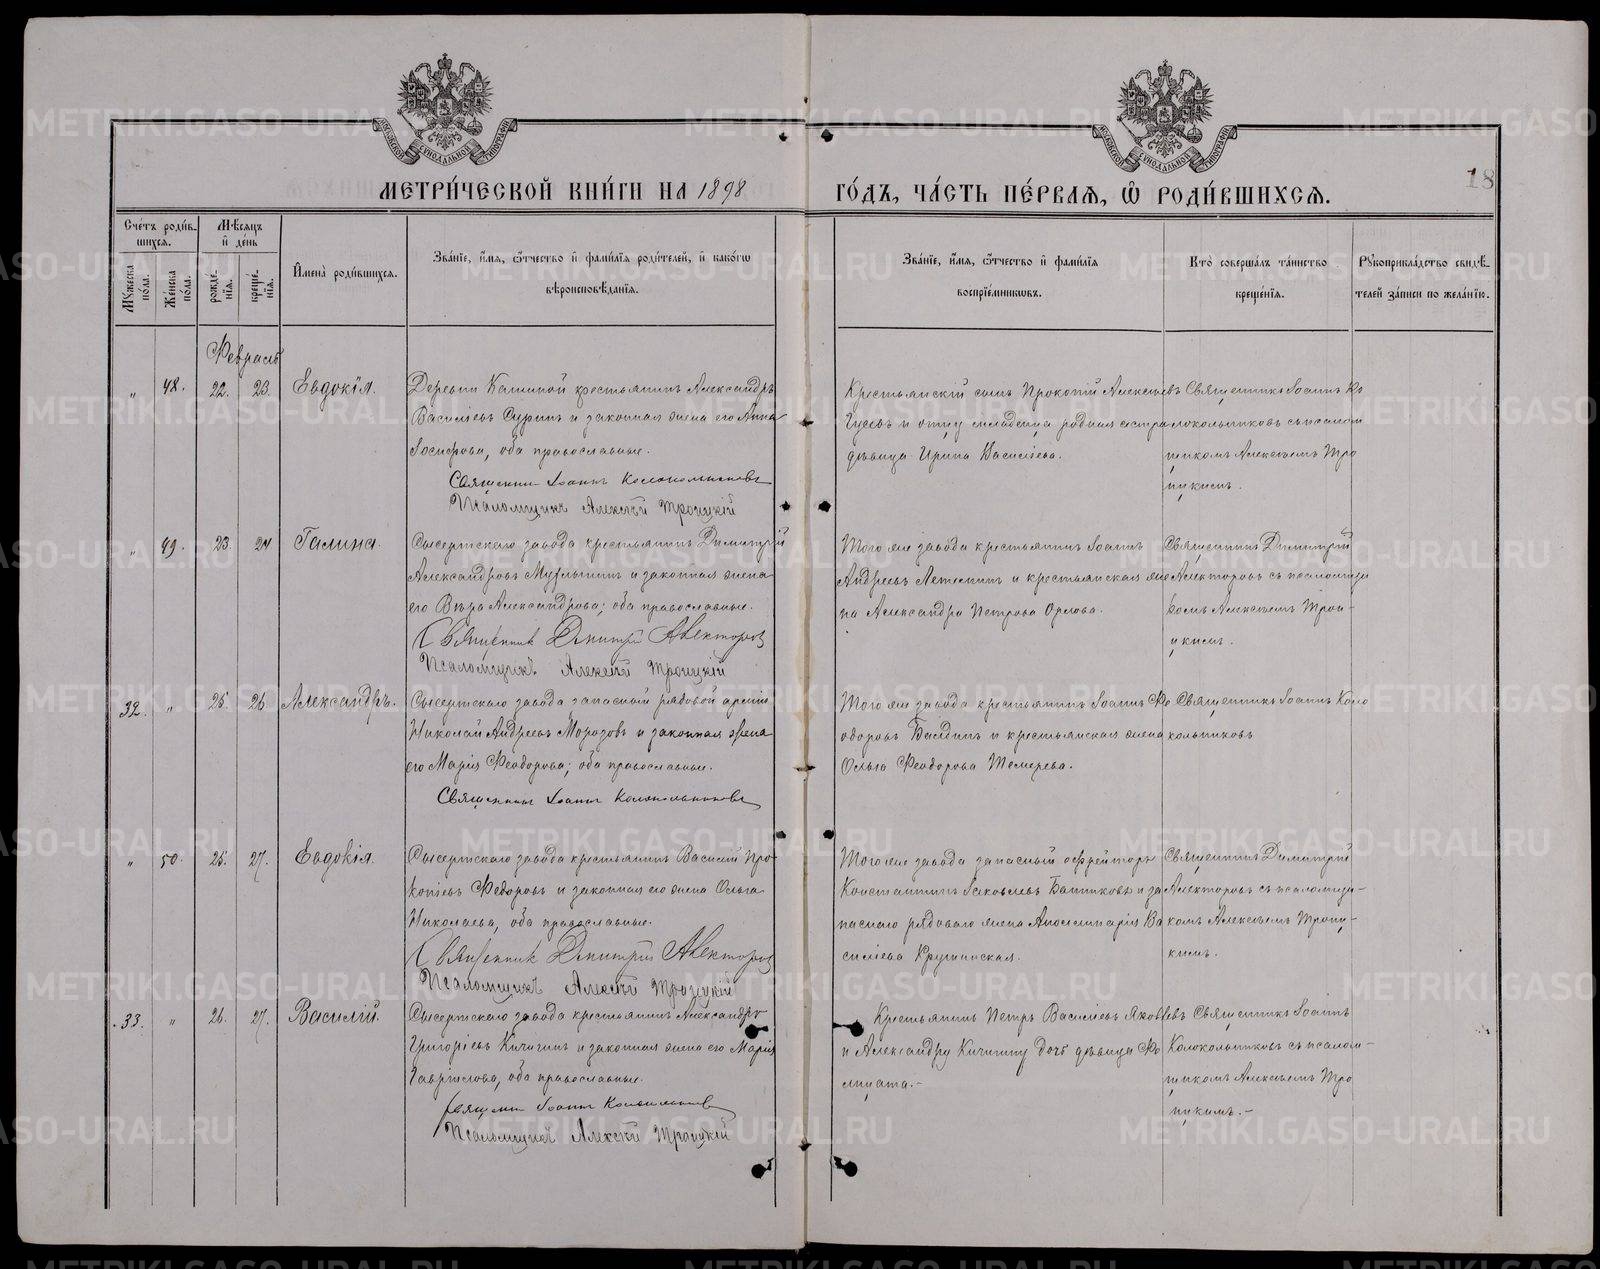 МОСКОВСКОЙ СѴНОДАЛЬНОЙ ТИПОГРАФІИ
МОСКОВСКОЙ СѴНОДАЛЬНОЙ ТИПОГРАФІИ
18
МЕТРИ́ЧЕСКОЙ КНИ́ГИ НА 1898
ГО́ДЪ, ЧА́СТЬ ПЕ́РВАЯ, Ѽ РОДИ́ВШИХСЯ.
Сче́тъ роди́в-
шихся.
Мѣ́сяцъ
и҆ де́нь
Мꙋ́жеска
по́ла.
Же́нска
по́ла.
рожде́-
нїя.
креще́-
нїя.
И҆мена̀ роди́вшихся.
Зва́нїе, и҆́мя, ѻ҆́тчество и҆ фами́лїя роди́телей, и҆ како́гѡ
вѣроисповѣ́данїя.
Зва́нїе, и҆́мя, ѻ҆́тчество и҆ фами́лїя
воспрїе́мникѡвъ.
Кто̀ соверша́лъ та́инство
креще́нїя.
Рꙋкоприкла́дство свидѣ́-
телей за́писи по жела́нїю.
Февраль
„ 48. 22. 23. Евдокія.
Деревни Кашиной крестьянинъ Александръ
Василіевъ Суринъ и законная жена его Анна
Іосифова, оба православные.
Священникъ Іоаннъ Колокольниковъ
Псаломщикъ Алексѣй Троицкій
Крестьянскій сынъ Прокопій Алексѣевъ
Гусевъ и отцу младенца родная сестра
дѣвица Ирина Васильева.
Священникъ Іоаннъ Ко
локольниковъ съ псалом
щикомъ Алексѣемъ Тро
ицкимъ.
„ 49. 23. 24 Галина.
Сысертскаго завода крестьянинъ Димитрій
Александровъ и законная жена
его Вѣра Александрова; оба православные.
Священник Димитрій Алекторов
Псаломщикъ Алексѣй Троицкій
Того же завода крестьянинъ Іоаннъ
Андреевъ Летемин и крестьянская же
на Александра Петрова Орлова.
Священникъ Димитрій
Алекторовъ съ псаломщи
комъ Алексѣемъ Трои-
цкимъ.
32. „ 25. 26 Александръ.
Сысертскаго завода запасный рядовой арміи
Николай Андреевъ Морозовъ и законная жена
его Марія Феодорова; оба православные.
Священникъ Іоаннъ Колокольниковъ
Того же завода крестьянинъ Іоаннъ Фе
одоровъ и крестьянская жена
Ольга Феодорова Темерева.
Священникъ Іоаннъ Коло
кольниковъ
„ 50. 25. 27. Евдокія.
Сысертскаго завода крестьянинъ Василій Про-
копіевъ Федоровъ и законная его жена Ольга
Николаева, оба православные.
Священник Димитрій Алекторов
Псаломщикъ Алексѣй Троицкій
Того же завода запасный ефрейторъ
Константинъ Іаковлевъ Банниковъ и за
паснаго рядоваго жена Аполлинарія Ва
силіева Крушинская.
Священникъ Димитрій
Алекторовъ съ псаломщи-
комъ Алексѣемъ Троиц-
кимъ.
33. „ 26. 27. Василій.
Сысертскаго завода крестьянинъ Александръ
Григоріевъ Кичигинъ и законная жена его Марія
Гавріилова, оба православные.
Священникъ Іоаннъ Колокольниковъ
Псаломщикъ Алексѣй Троицкій
Крестьянинъ Петръ Василіевъ Яковлевъ
и Александру Кичигину дочь дѣвица Фо
Священникъ Іоаннъ
Колокольниковъ съ псалом-
щикомъ Алексѣемъ Тро
ицкимъ.-
METRIKI.GASO-URAL.RU